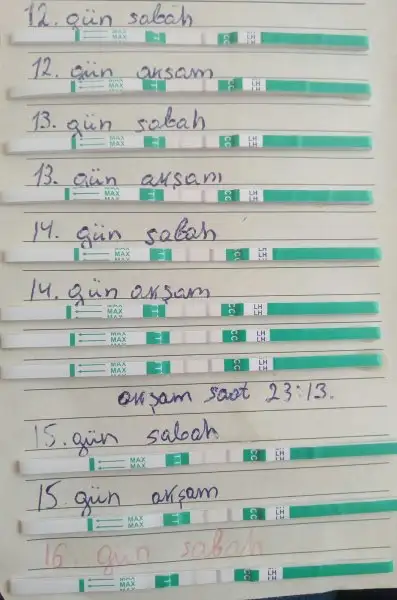 12. gün sabah
MAX
MAX
T
CC
LH
LH
12. gün akşam
MAX
MAX
T
CC
LH
LH
13. gün sabah
MAX
MAX
T
CC
LH
LH
13. gün akşam
MAX
MAX
T
CC
LH
LH
14. gün sabah
MAX
MAX
T
CC
LH
LH
14. gün akşam
MAX
MAX
T
CC
LH
LH
MAX
MAX
T
CC
LH
LH
MAX
MAX
T
CC
LH
LH
akşam saat 23:13.
15. gün sabah
MAX
MAX
TT
CC
LH
LH
15. gün akşam
MAX
MAX
TT
CC
LH
LH
16. gün sabah
MAX
MAX
T
CC
LH
LH